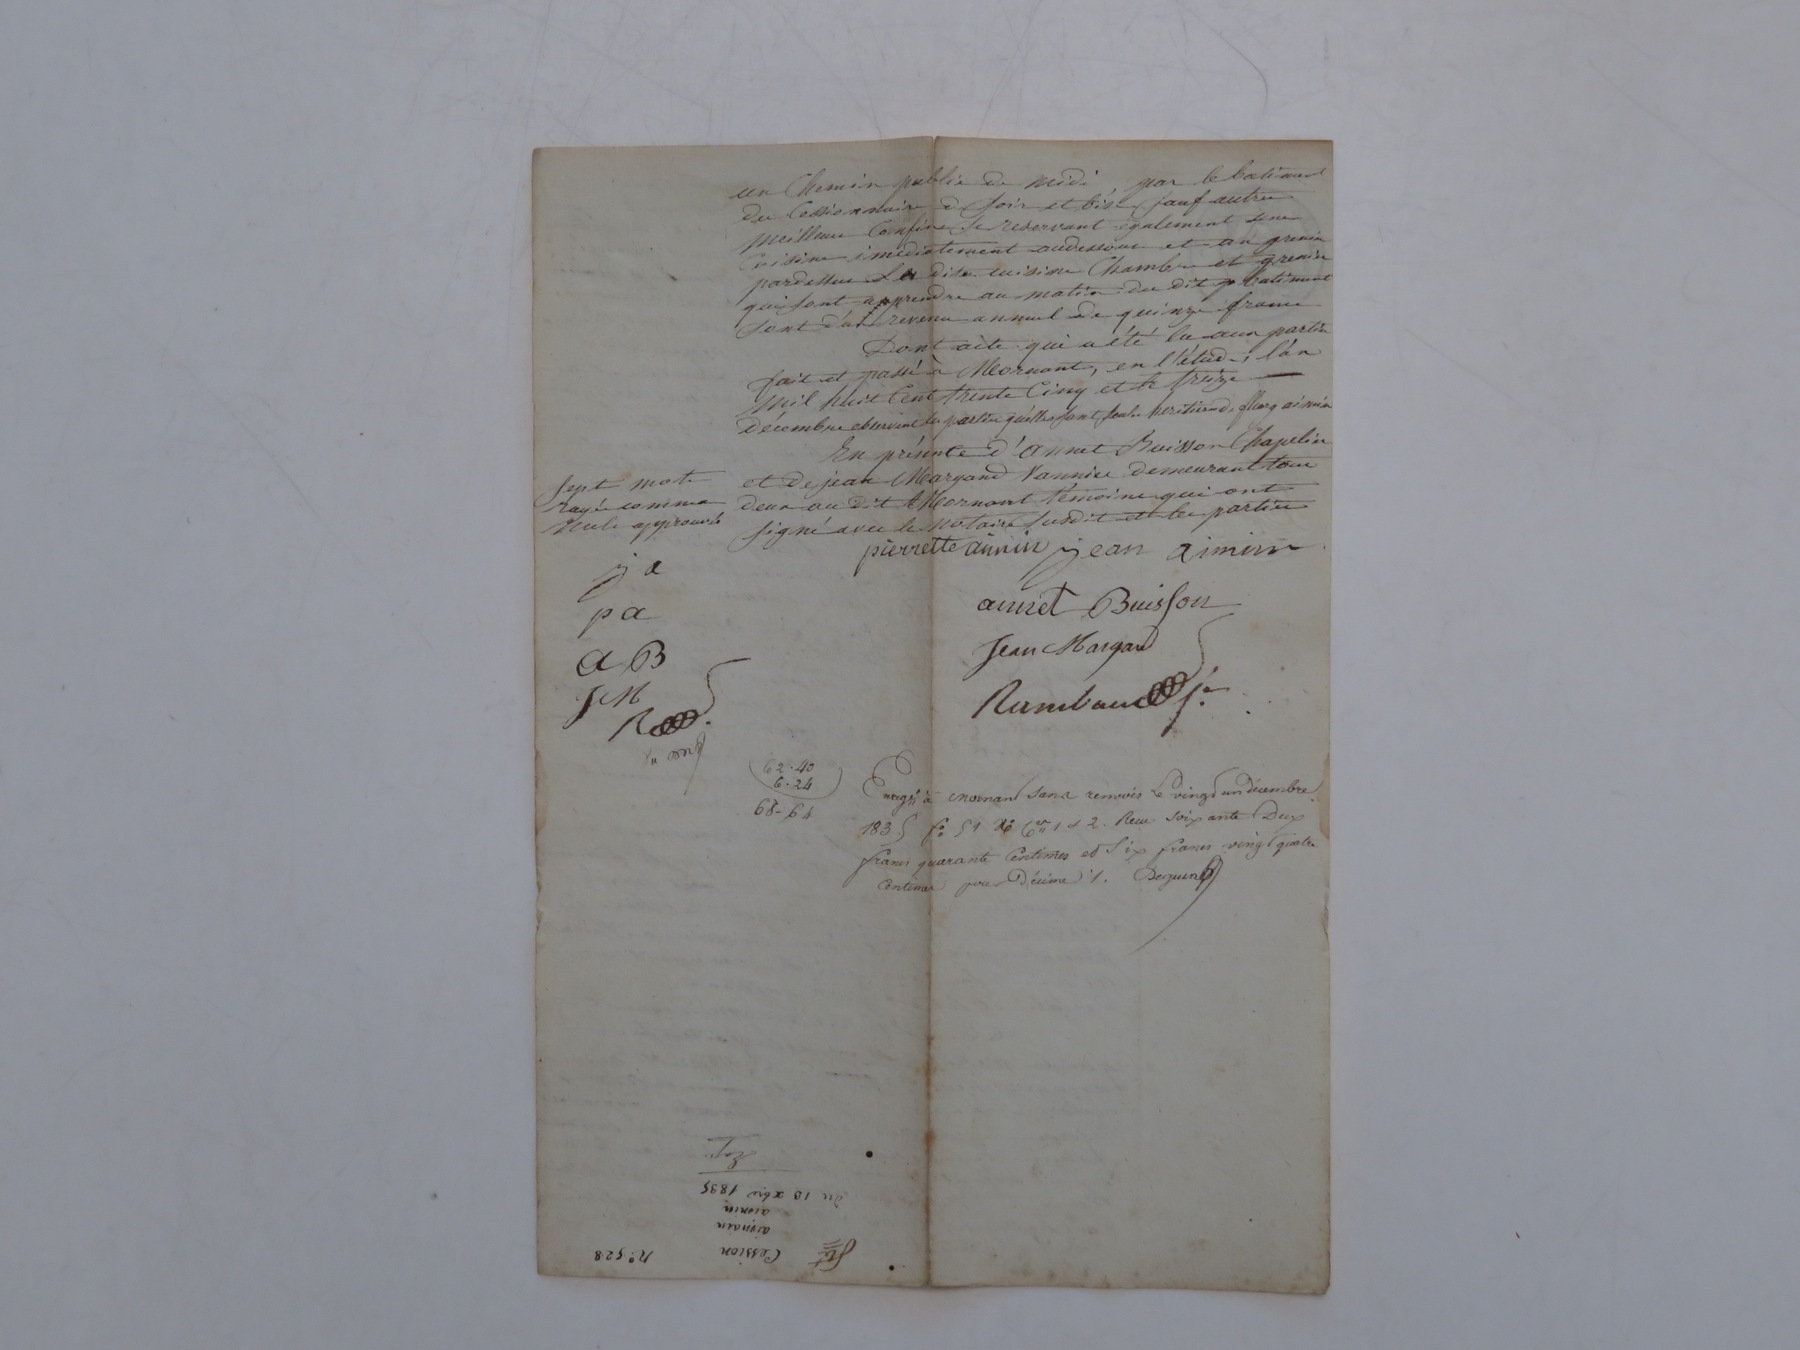 un Chemin public de midi par le batiment
du Cessionnaire de soir et bise sauf autres
meilleurs Confins se reservant également une
Cuisine immédiatement audessous et un grenier
pardessus La dite cuisine Chambre et grenier
qui sont apprendre au matin du dit batiment
sont d'un revenu annuel de quinze francs
Dont acte qui a été lu aux parties
fait et passé à Mornant, en l'étude, l'an
mil huit Cent trente Cinq et le treize
décembre observant les parties quelles sont seules heritieres de
En présence d'annet Buisson Chapelier
et de jean Margand Vannier demeurant tous
deux au dit Mornant témoins qui ont
signé avec le Notaire susdit et les parties
Sept mots
rayés comme
Nuls approuvés
pierrette aimin jean aimin
j a
p a
A B
J M
R
annet Buisson
Jean Margan
Rambaud
62.40
6.24
68-64
Enregé à mornant sans renvois le vingt un décembre
1835 fo 51 Ro Ces 1 et 2. Reçu soixante Deux
francs quarante Centimes et six francs vingt quatre
Centimes pour Décime
No 528
Cession
aimain
aimin
du 13 xbre 1835